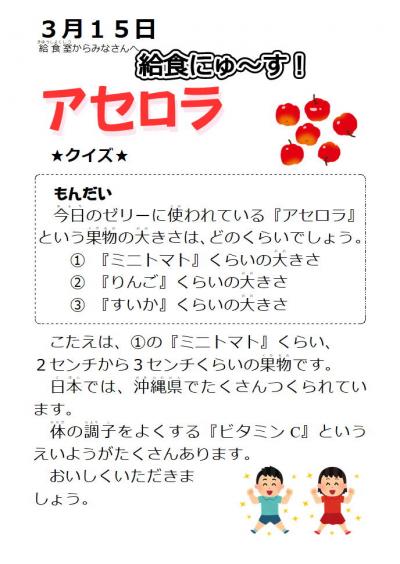 ３月１５日
給食室からみなさんへ
給食にゅ～す！
アセロラ
★クイズ★
もんだい
今日のゼリーに使われている『アセロラ』
という果物の大きさは、どのくらいでしょう。
① 『ミニトマト』くらいの大きさ
② 『りんご』くらいの大きさ
③ 『すいか』くらいの大きさ
こたえは、①の『ミニトマト』くらい、
２センチから３センチくらいの果物です。
日本では、沖縄県でたくさんつくられてい
ます。
体の調子をよくする『ビタミンC』という
えいようがたくさんあります。
おいしくいただきま
しょう。